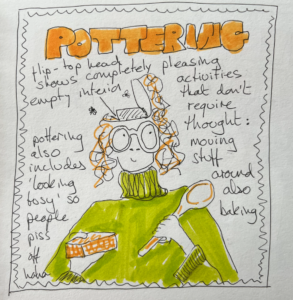 POTTERING
flip-top head
shows completely
empty interior
pleasing
activities
that don't
require
thought:
moving
stuff
around
also
baking
pottering
also
includes
'looking
busy' so
people
piss
off